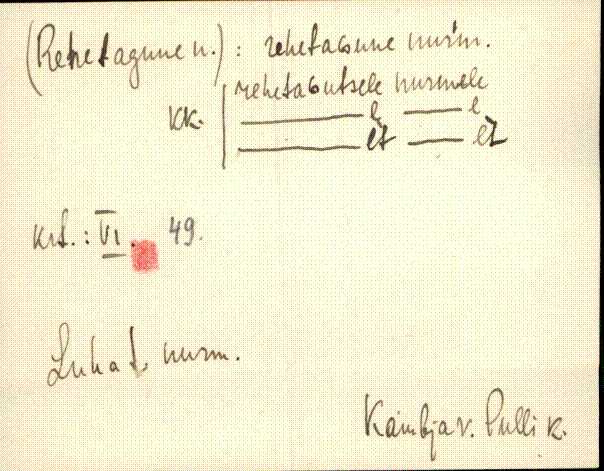 (Rehetagune n.) : rehetaɢune nuŕm.
rehetaɢutsele nurmele
KK. | ——— e —— e
——— et —— et
krt.: VI. 49.
Luhat. nurm.
Kambja v. Pulli k.